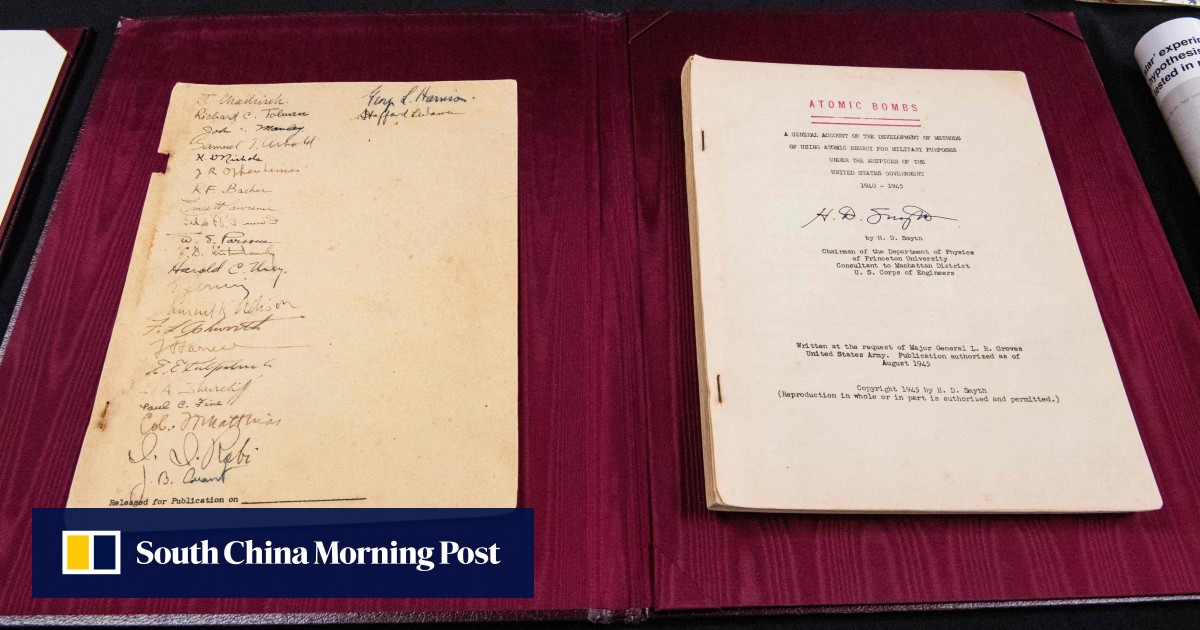 J. Chadwick
Richard C. Tolman
John Manley
Samuel T. Arnold
K D Nichols
J R Oppenheimer
R.F. Bacher
W. S. Parsons
Harold C. Urey.
E Fermi
F. L. Ashworth
Paul C. Fine
Col. Matthias
I. I. Rabi
J. B. Conant
Released for Publication on
George L. Harrison.
Stafford L Warren
ATOMIC BOMBS
A GENERAL ACCOUNT OF THE DEVELOPMENT OF METHODS
OF USING ATOMIC ENERGY FOR MILITARY PURPOSES
UNDER THE AUSPICES OF THE
UNITED STATES GOVERNMENT
1940 - 1945
H. D. Smyth
by H. D. Smyth
Chairman of the Department of Physics
of Princeton University
Consultant to Manhattan District
U. S. Corps of Engineers
Written at the request of Major General L. R. Groves
United States Army. Publication authorized as of
August 1945
Copyright 1945 by H. D. Smyth
(Reproduction in whole or in part is authorized and permitted.)
hypothesis
South China Morning Post